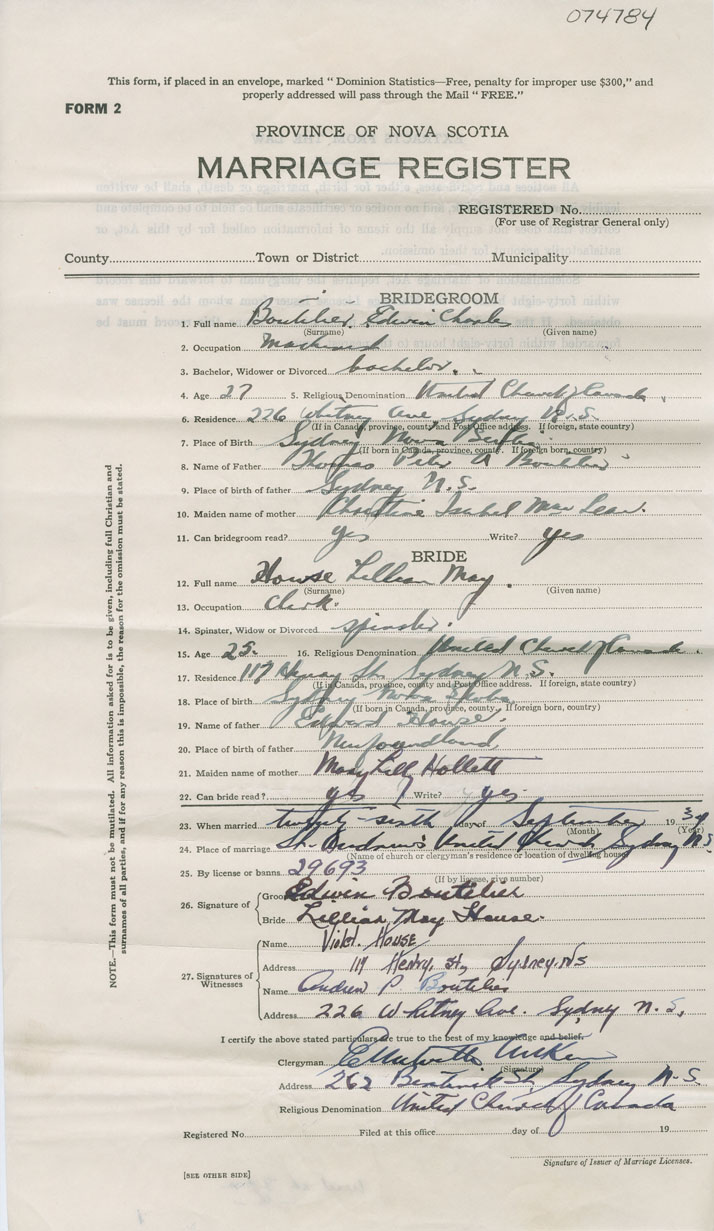 074784
This form, if placed in an envelope, marked " Dominion Statistics—Free, penalty for improper use $300," and
properly addressed will pass through the Mail " FREE."
FORM 2
PROVINCE OF NOVA SCOTIA
MARRIAGE REGISTER
REGISTERED No.
(For use of Registrar General only)
County Town or District Municipality
BRIDEGROOM
1. Full name Boutilier, Edwin Charles
(Surname) (Given name)
2. Occupation Machinist
3. Bachelor, Widower or Divorced bachelor.
4. Age 27 5. Religious Denomination United Church of Canada
6. Residence 226 Whitney Ave, Sydney N.S.
(If in Canada, province, county and Post Office address. If foreign, state country)
7. Place of Birth Sydney Nova Scotia
(If born in Canada, province, county. If foreign born, country)
8. Name of Father Thomas Peter A Boutilier
9. Place of birth of father Sydney N.S.
10. Maiden name of mother Christine Isabel MacLean.
11. Can bridegroom read? yes Write? yes
BRIDE
12. Full name House Lillian May.
(Surname) (Given name)
13. Occupation Clerk.
14. Spinster, Widow or Divorced spinster.
15. Age 25. 16. Religious Denomination United Church of Canada.
17. Residence 117 Henry St. Sydney N.S.
(If in Canada, province, county and Post Office address. If foreign, state country)
18. Place of birth Sydney Nova Scotia
(If born in Canada, province, county. If foreign born, country)
19. Name of father Edward House.
20. Place of birth of father Newfoundland,
21. Maiden name of mother Mary Lilly Hollett
22. Can bride read? yes Write? yes.
23. When married twenty-sixth day of September 19
(Month) (Year)
24. Place of marriage St. Andrew's United Church Sydney N.S.
(Name of church or clergyman's residence or location of dwelling house)
25. By license or banns 29693
(If by license, give number)
26. Signature of Groom Edwin Boutilier
Bride Lillian May House.
27. Signatures of Witnesses
Name Violet. House
Address 117 Henry, St, Sydney, NS
Name Andrew P Boutilier
Address 226 Whitney Ave. Sydney N.S,
I certify the above stated particulars are true to the best of my knowledge and belief.
Clergyman
(Signature)
Address 262 St, Sydney N.S.
Religious Denomination United Church of Canada
Registered No. Filed at this office day of 19
Signature of Issuer of Marriage Licenses.
[SEE OTHER SIDE]
NOTE.—This form must not be mutilated. All information asked for is to be given, including full Christian and
surnames of all parties, and if for any reason this is impossible, the reason for the omission must be stated.